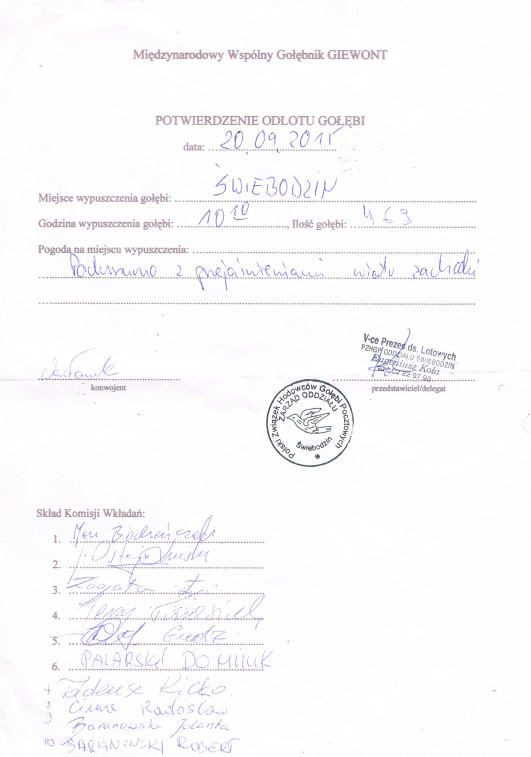 Międzynarodowy Wspólny Gołębnik GIEWONT
POTWIERDZENIE ODLOTU GOŁĘBI
data: 20.09.2015
Miejsce wypuszczenia gołębi: ŚWIEBODZIN
Godzina wypuszczenia gołębi: 10 10, Ilość gołębi: 469
Pogoda na miejscu wypuszczenia:
Pochmurno z przejaśnieniami wiatr zachodni
V-ce Prezes ds. Lotowych
PZHGP ODDZIAŁU ŚWIEBODZIN
Eugeniusz Koła
konwojent
przedstawiciel/delegat
Polski Związek Hodowców Gołębi Pocztowych
ZARZĄD ODDZIAŁU
Świebodzin
Skład Komisji Wkładań:
1.
2.
3.
4.
5. Gudz
6. PALARSKI DOMINIK
7 Tadeusz Kicko
8 Radosław
9 Baranowska Jolanta
10 BARANOWSKI ROBERT